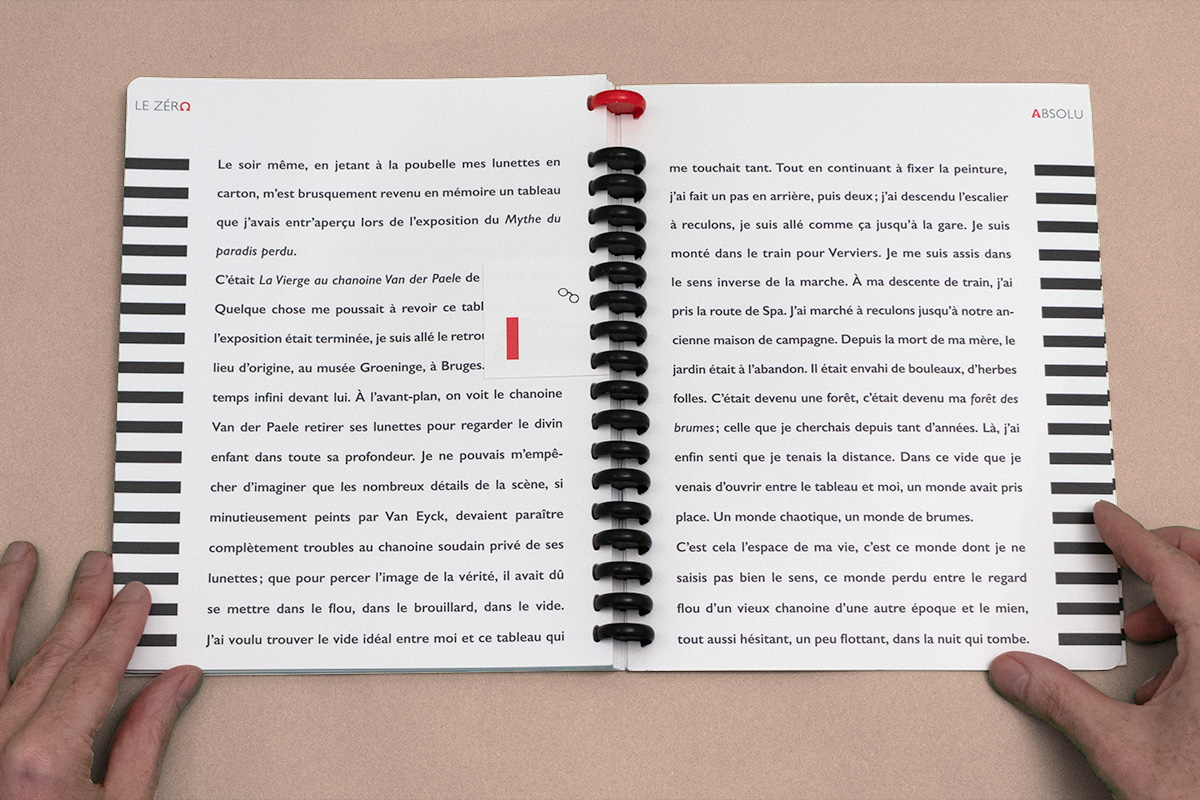 LE ZÉRΩ
Le soir même, en jetant à la poubelle mes lunettes en
carton, m’est brusquement revenu en mémoire un tableau
que j’avais entr’aperçu lors de l’exposition du Mythe du
paradis perdu.
C’était La Vierge au chanoine Van der Paele de
Quelque chose me poussait à revoir ce
l’exposition était terminée, je suis allé le
lieu d’origine, au musée Groeninge, à Bruges.
temps infini devant lui. À l’avant-plan, on voit le chanoine
Van der Paele retirer ses lunettes pour regarder le divin
enfant dans toute sa profondeur. Je ne pouvais m’empê-
cher d’imaginer que les nombreux détails de la scène, si
minutieusement peints par Van Eyck, devaient paraître
complètement troubles au chanoine soudain privé de ses
lunettes ; que pour percer l’image de la vérité, il avait dû
se mettre dans le flou, dans le brouillard, dans le vide.
J’ai voulu trouver le vide idéal entre moi et ce tableau qui
ABSOLU
me touchait tant. Tout en continuant à fixer la peinture,
j’ai fait un pas en arrière, puis deux ; j’ai descendu l’escalier
à reculons, je suis allé comme ça jusqu’à la gare. Je suis
monté dans le train pour Verviers. Je me suis assis dans
le sens inverse de la marche. À ma descente de train, j’ai
pris la route de Spa. J’ai marché à reculons jusqu’à notre an-
cienne maison de campagne. Depuis la mort de ma mère, le
jardin était à l’abandon. Il était envahi de bouleaux, d’herbes
folles. C’était devenu une forêt, c’était devenu ma forêt des
brumes ; celle que je cherchais depuis tant d’années. Là, j’ai
enfin senti que je tenais la distance. Dans ce vide que je
venais d’ouvrir entre le tableau et moi, un monde avait pris
place. Un monde chaotique, un monde de brumes.
C’est cela l’espace de ma vie, c’est ce monde dont je ne
saisis pas bien le sens, ce monde perdu entre le regard
flou d’un vieux chanoine d’une autre époque et le mien,
tout aussi hésitant, un peu flottant, dans la nuit qui tombe.